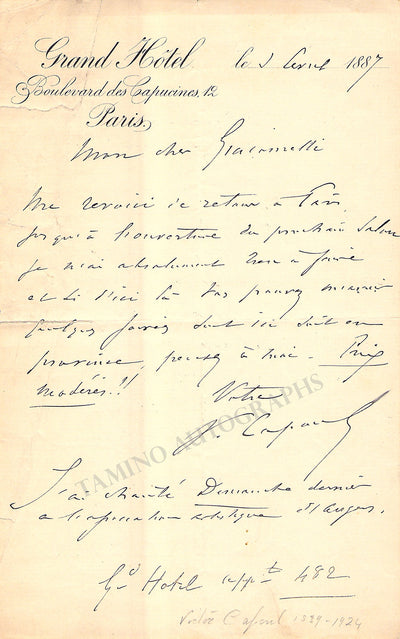 Grand Hôtel. le 2 Avril 1887
Boulevard des Capucines, 12
Paris.
Mon cher Giacomelli
Me revoici de retour à Paris
jusqu'à l'ouverture du prochain Salon
je n'ai absolument rien à faire
et si d'ici là vous pouvez m'avoir
quelques soirées soit ici soit en
province, pensez à moi. Prix
modérés!!
Votre
V. Capoul
TAMINO AUTOGRAPHS
J'ai chanté Dimanche dernier
à l'association artistique d'Angers.
Gd Hotel appt 482
Victor Capoul 1839-1924